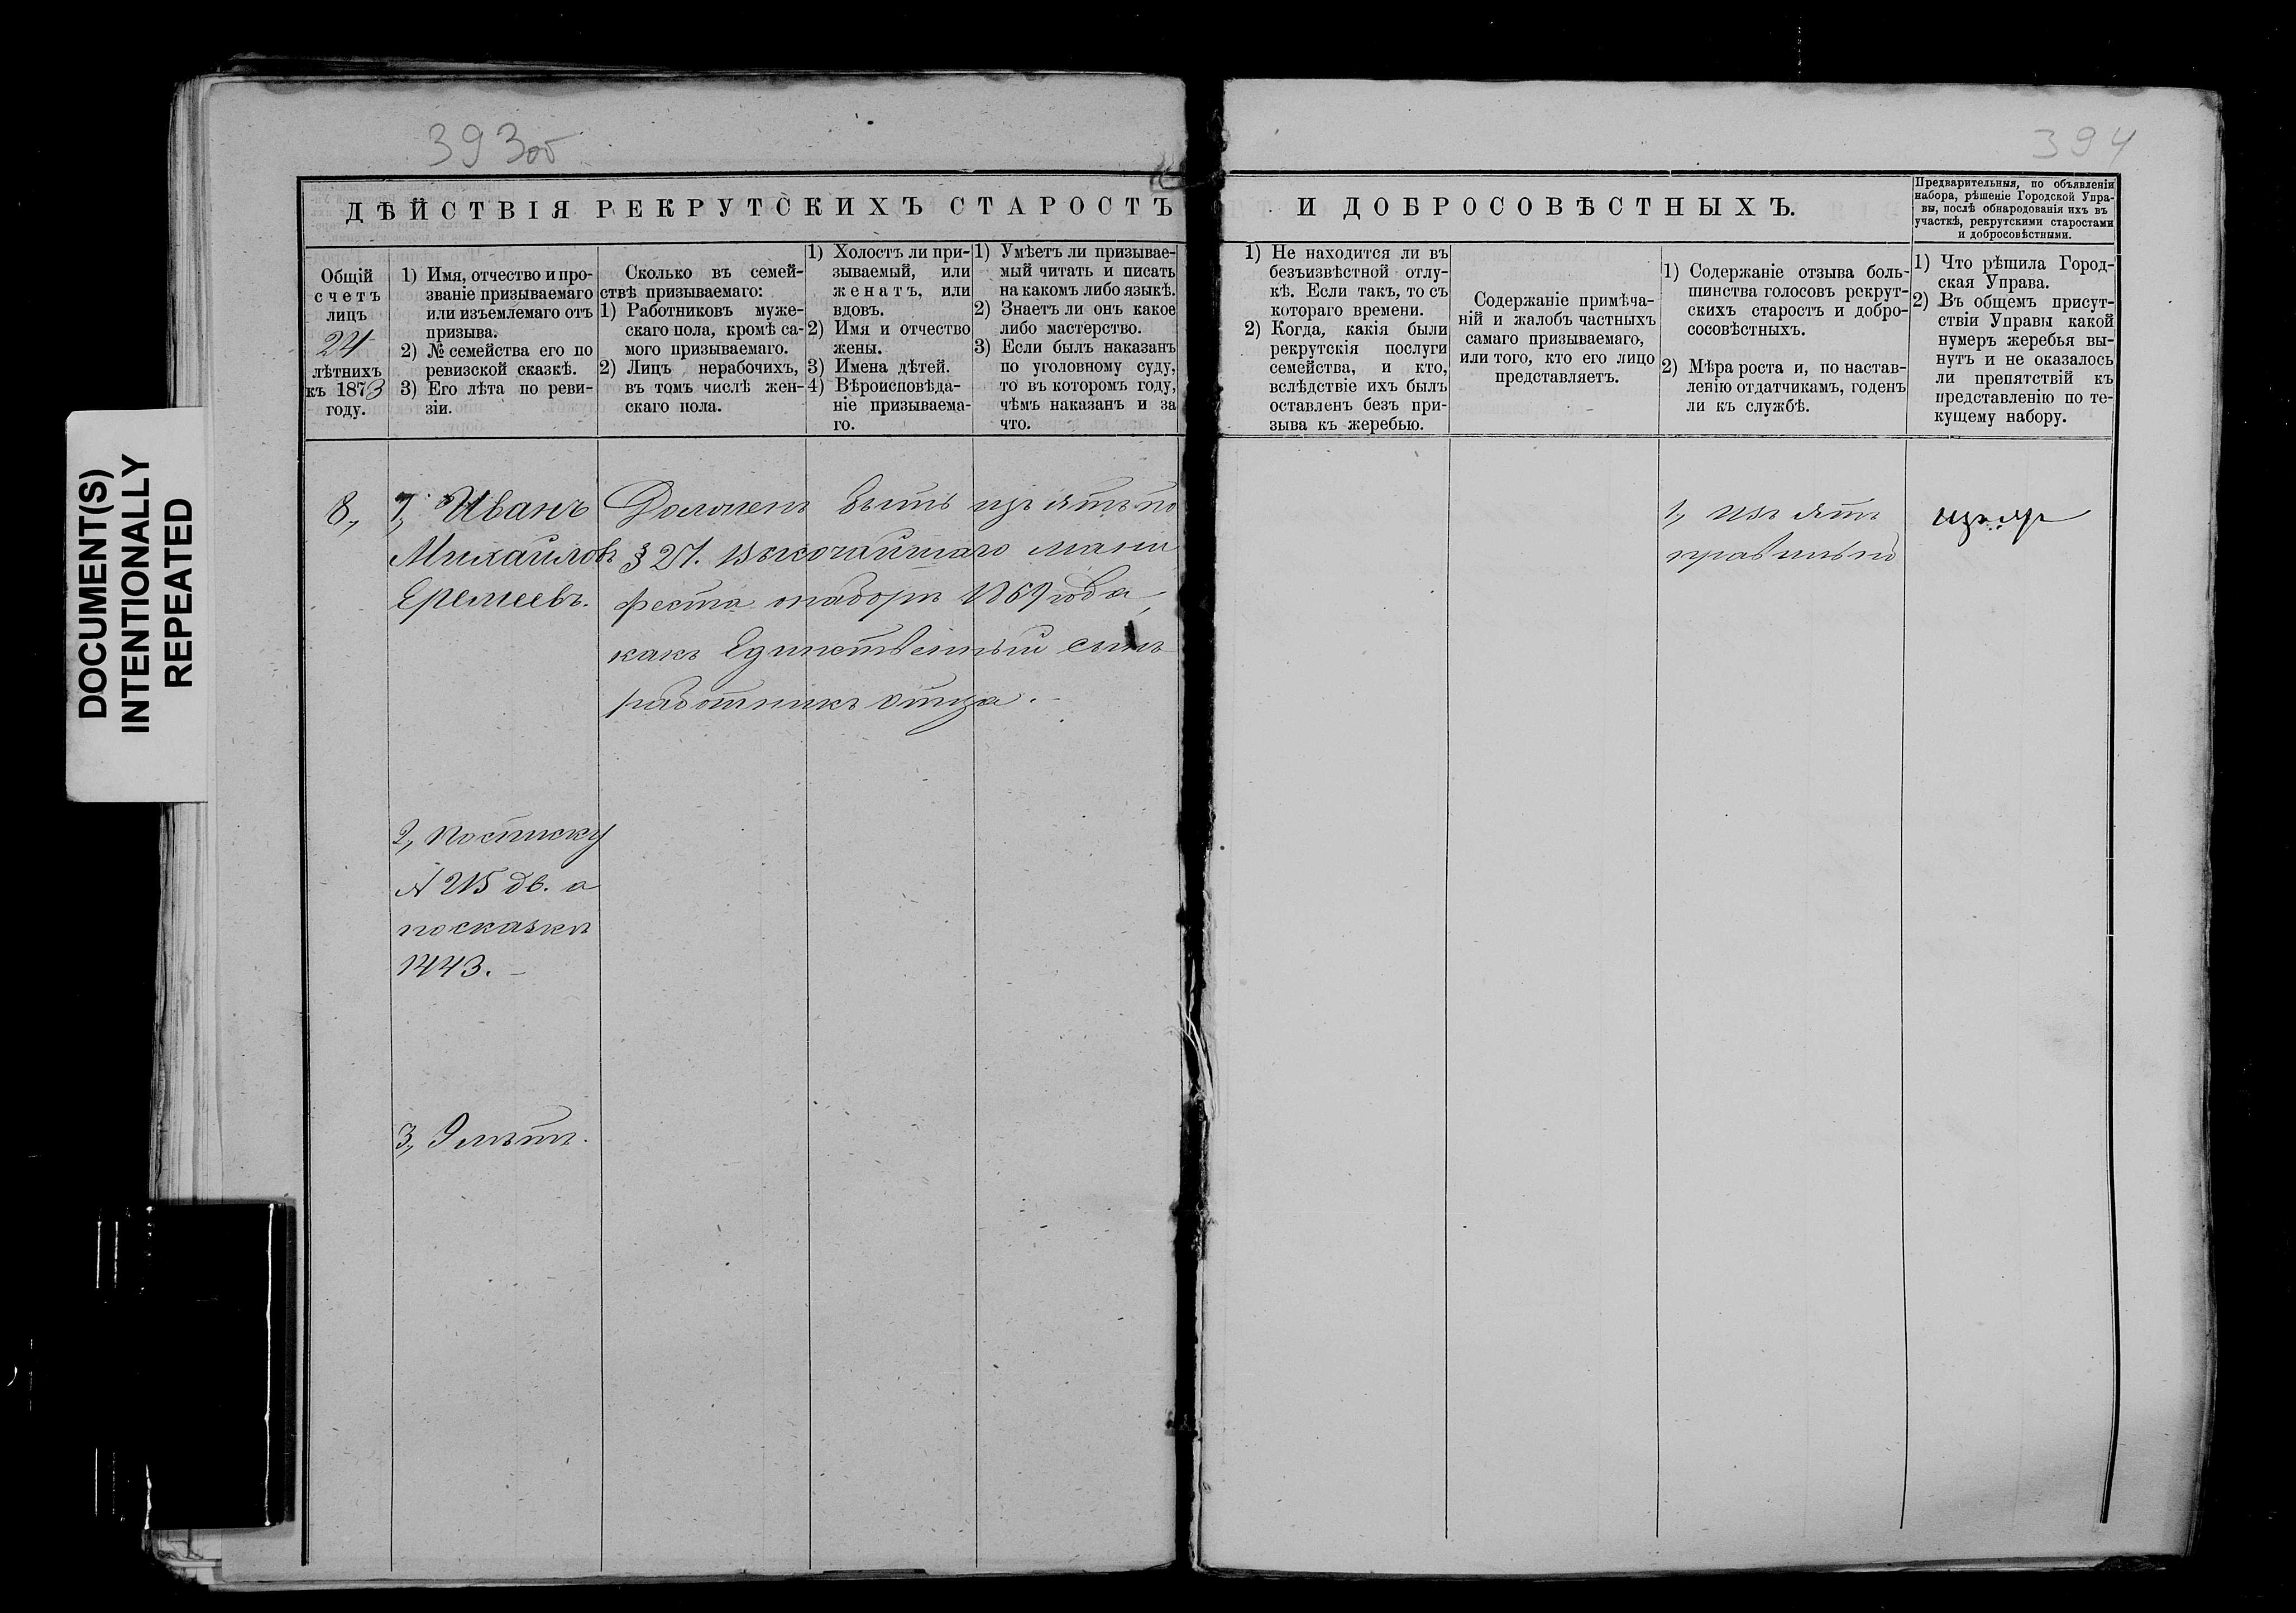 393об
394
ДѢЙСТВІЯ РЕКРУТСКИХЪ СТАРОСТЪ
И ДОБРОСОВѢСТНЫХЪ.
Предварительныя, по объявленіи
набора, рѣшеніе Городской Упра-
вы, послѣ обнародованія ихъ въ
участкѣ, рекрутскими старостами
и добросовѣстными.
Общій
счетъ
лицъ
24
лѣтнихъ
къ 1873
году.
1) Имя, отчество и про-
званіе призываемаго
или изъемлемаго отъ
призыва.
2) № семейства его по
ревизской сказкѣ.
3) Его лѣта по реви-
зіи.
Сколько въ семей-
ствѣ призываемаго:
1) Работниковъ муже-
скаго пола, кромѣ са-
мого призываемаго.
2) Лицъ нерабочихъ,
въ томъ числѣ жен-
скаго пола.
1) Холостъ ли при-
зываемый, или
женатъ, или
вдовъ.
2) Имя и отчество
жены.
3) Имена дѣтей.
4) Вѣроисповѣда-
ніе призываема-
го.
1) Умѣетъ ли призывае-
мый читать и писать
на какомъ либо языкѣ.
2) Знаетъ ли онъ какое
либо мастерство.
3) Если былъ наказанъ
по уголовному суду,
то въ которомъ году,
чѣмъ наказанъ и за
что.
1) Не находится ли въ
безъизвѣстной отлу-
кѣ. Если такъ, то съ
котораго времени.
2) Когда, какія были
рекрутскія послуги
семейства, и кто,
вслѣдствіе ихъ былъ
оставленъ безъ при-
зыва къ жеребью.
Содержаніе примѣча-
ній и жалобъ частныхъ
самаго призываемаго,
или того, кто его лицо
представляетъ.
1) Содержаніе отзыва боль-
шинства голосовъ рекрут-
скихъ старостъ и добро-
сосовѣстныхъ.
2) Мѣра роста и, по настав-
ленію отдатчикамъ, годенъ
ли къ службѣ.
1) Что рѣшила Город-
ская Управа.
2) Въ общемъ присут-
ствіи Управы какой
нумеръ жеребья вы-
нутъ и не оказалось
ли препятствій къ
представленію по те-
кущему набору.
8,
1, Иванъ
Михайловъ
Еремеевъ.
2, по списку
№ 215 дв. а
по сказкѣ
1443. –
3, 9 лѣтъ.
Долженъ быть изъятъ по
§ 21. высочайшаго мани
феста о наборѣ 1869 года,
какъ Единственный сынъ
работникъ отца. –
1, изъятъ
правильно
DOCUMENT(S)
INTENTIONALLY
REPEATED